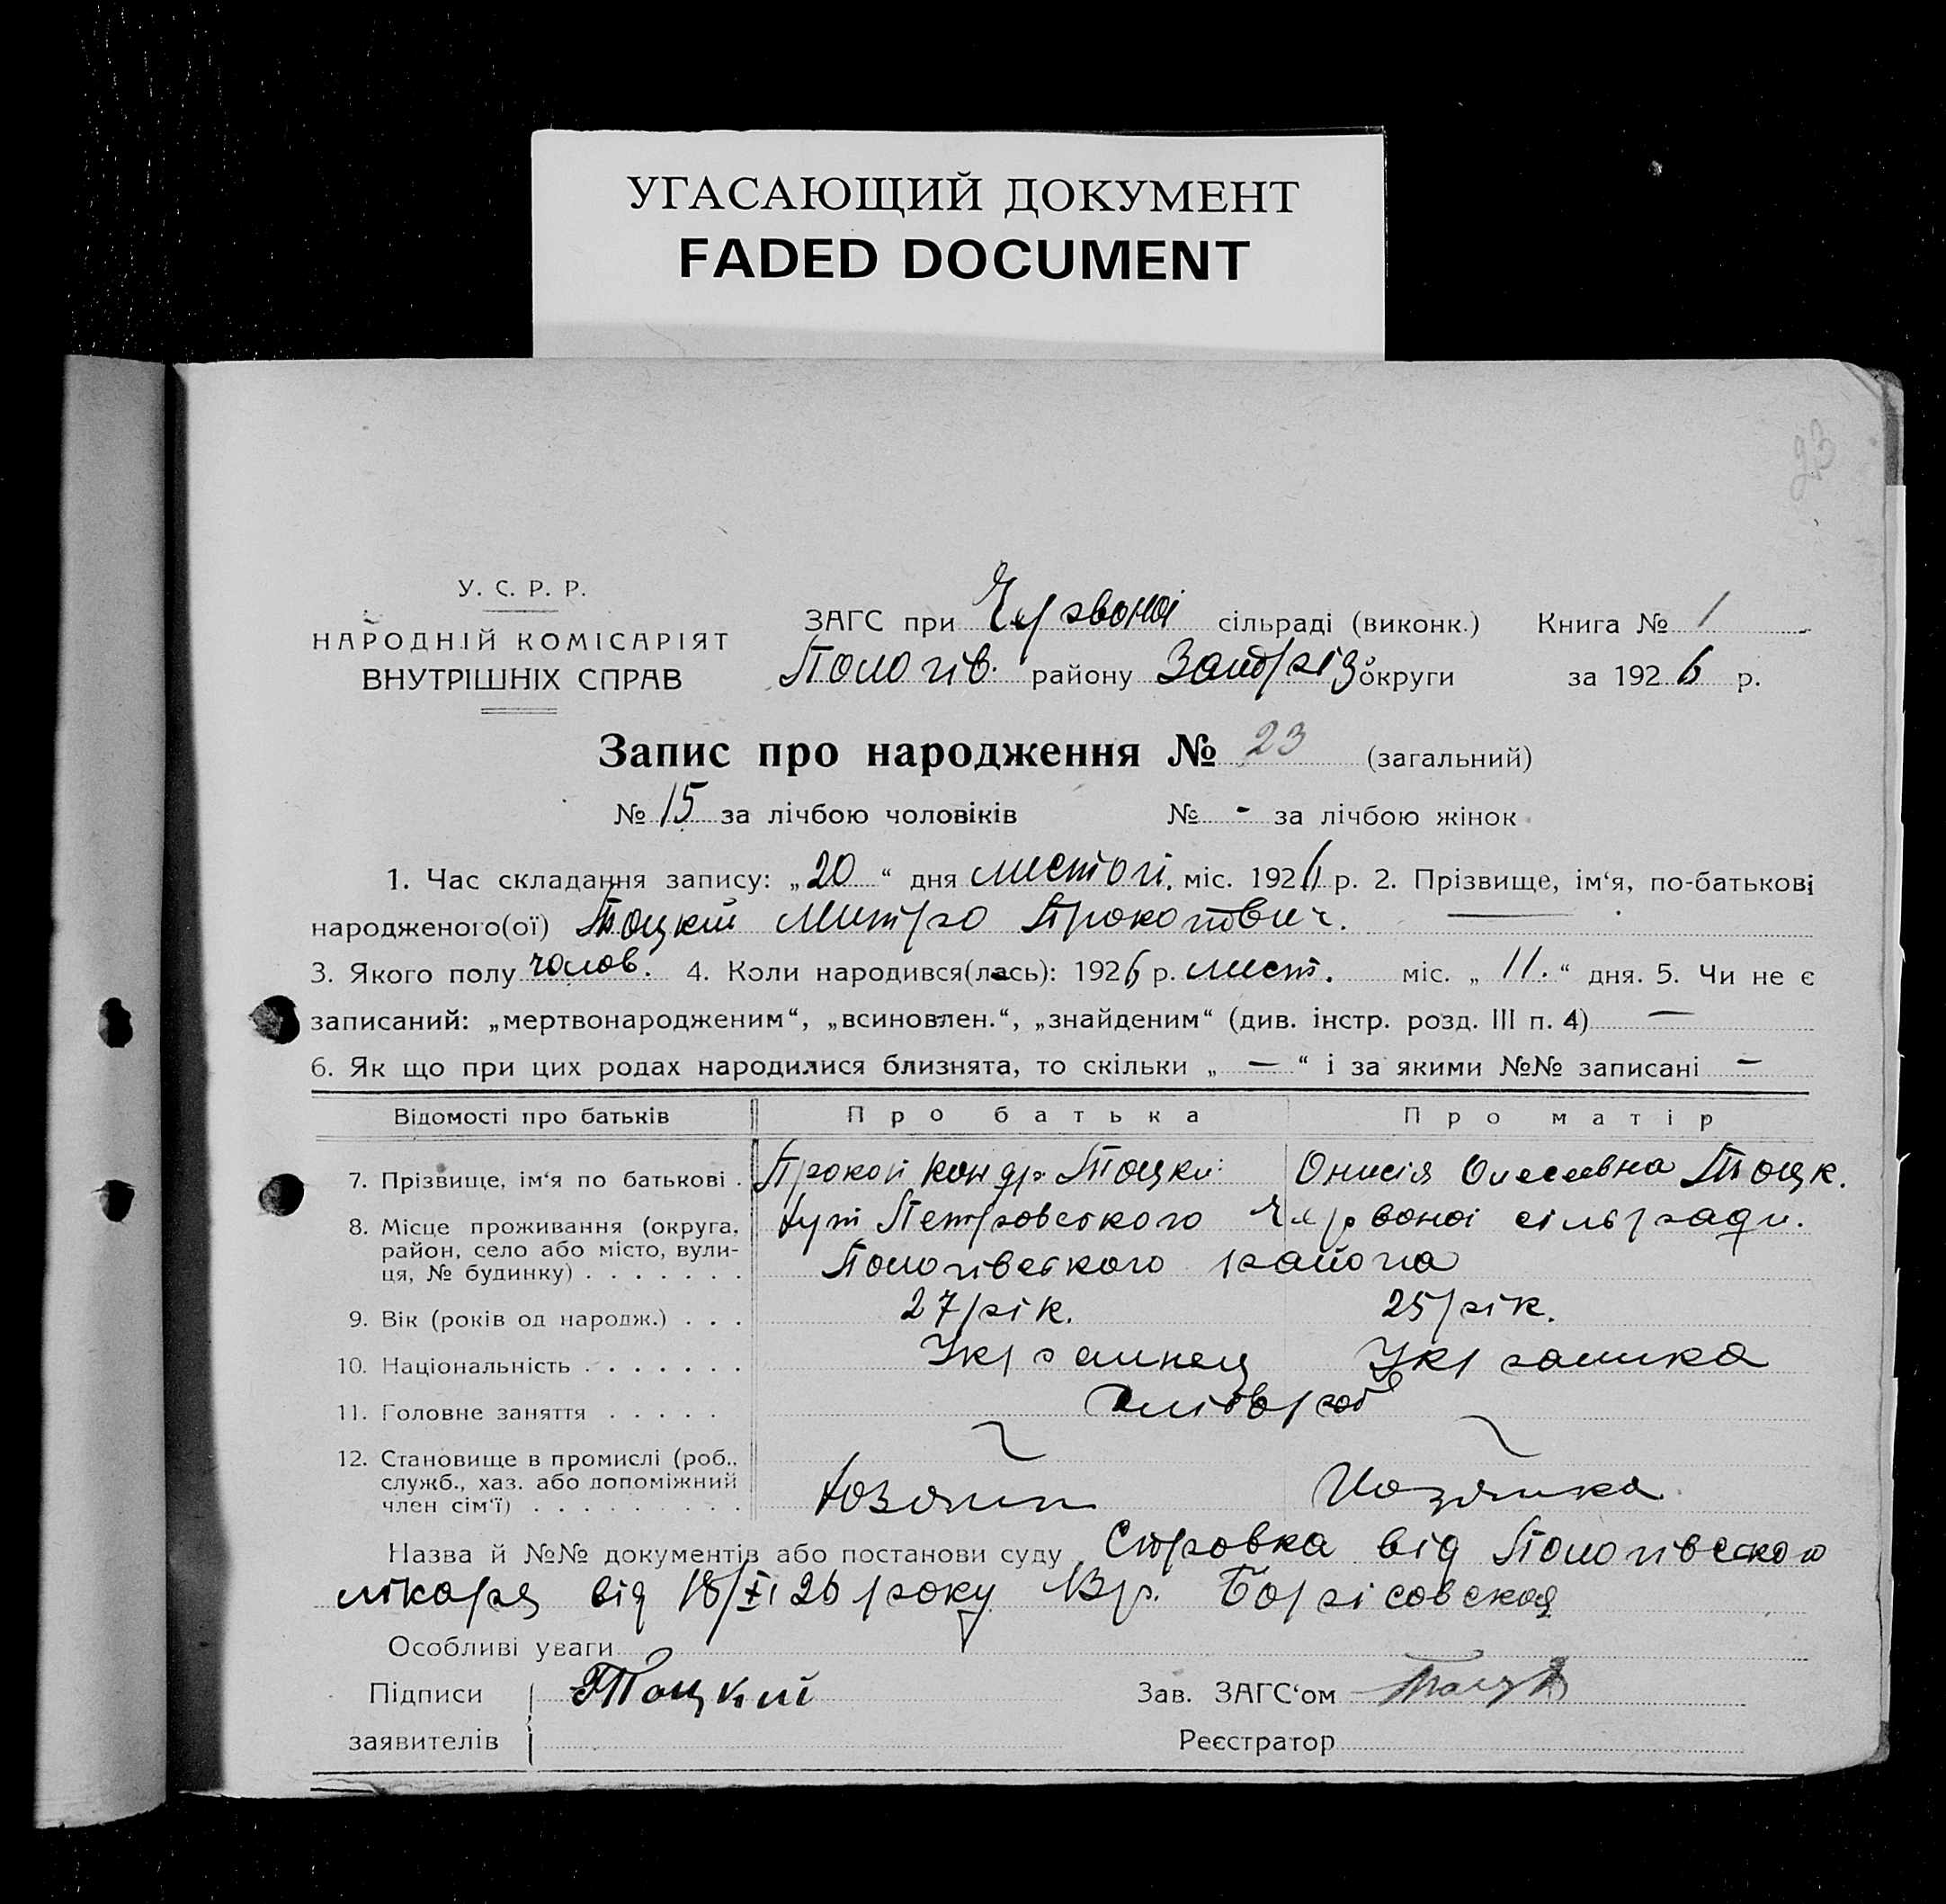 УГАСАЮЩИЙ ДОКУМЕНТ
FADED DOCUMENT
23
У. С. Р. Р.
НАРОДНІЙ КОМІСАРІЯТ
ВНУТРІШНІХ СПРАВ
ЗАГС при Червоної сільраді (виконк.) Книга № 1
Пологів. району Запоріз округи за 1926 р.
Запис про народження № 23 (загальний)
№ 15 за лічбою чоловіків № - за лічбою жінок
1. Час складання запису: „20“ дня листоп. міс. 1926 р. 2. Прізвище, ім‘я, по-батькові
народженого(ої) Тоцкий Митро Прокопович.
3. Якого полу чолов. 4. Коли народився(лась): 1926 р. лист. міс. „11.“ дня. 5. Чи не є
записаний: „мертвонародженим“, „всиновлен.“, „знайденим“ (див. інстр. розд. III п. 4) —
6. Як що при цих родах народилися близнята, то скільки „ — “ і за якими №№ записані —
Відомості про батьків Про батька Про матір
7. Прізвище, ім‘я по батькові . Прокоп Кондр. Тоцки: Онисія Тоцк.
8. Місце проживання (округа, район, село або місто, вулиця, № будинку) . . . . . . . Хут Петровского Червоної сільради.
Пологівского района
9. Вік (років од народж.) . . . 27 рік. 25 рік.
10. Національність . . . . . . . Украинец Украинка
11. Головне заняття . . . . . Хлібороб
12. Становище в промислі (роб., служб., хаз. або допоміжний член сім‘ї) . . . . . . . . . Хозяин Хозяйка
Назва й №№ документів або постанови суду Справка від Пологівского
лікаря від 18/XI 26 року Вр. Борісовская
Особливі уваги
Підписи Тоцкий Зав. ЗАГС‘ом
заявителів Реєстратор